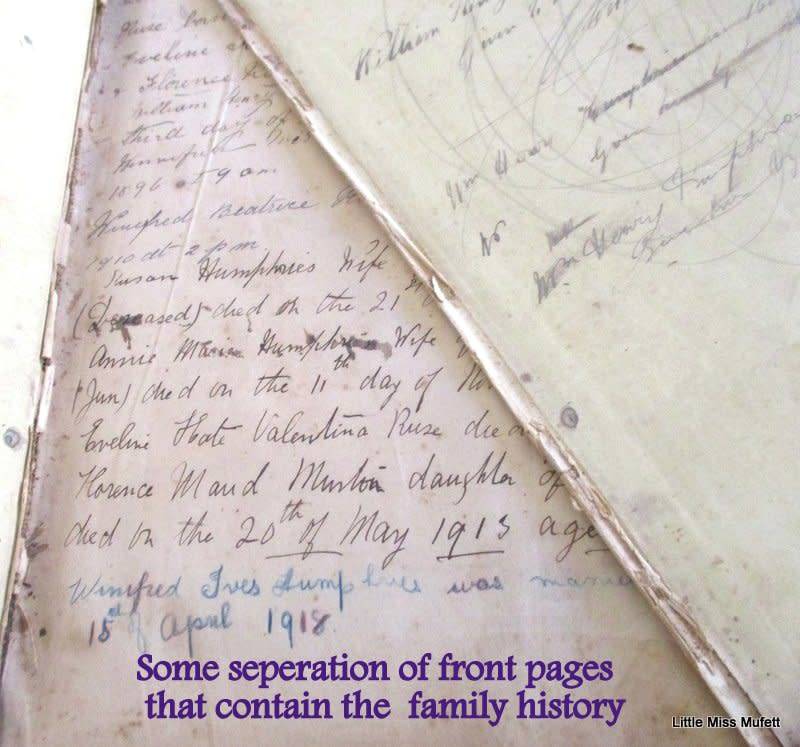 Ruse
Eveline
Florence
William Henry
third day of
1896 5 9 am
Winifred Beatrice
1910 at 2 p.m.
Susan Humphries Wife
(Deceased) died on the 21st
Annie Maria Humphries Wife
(Jun) died on the 11th day of
Eveline Kate Valentina Ruse died on
Florence Maud daughter of
died on the 20th of May 1913 age
Winifred Ives Humphries was married
15 of April 1918.
William Henry
Given to
Wm Henry Humphries
Given
No
Wm Henry Humphries
Some seperation of front pages
that contain the family history
Little Miss Mufett